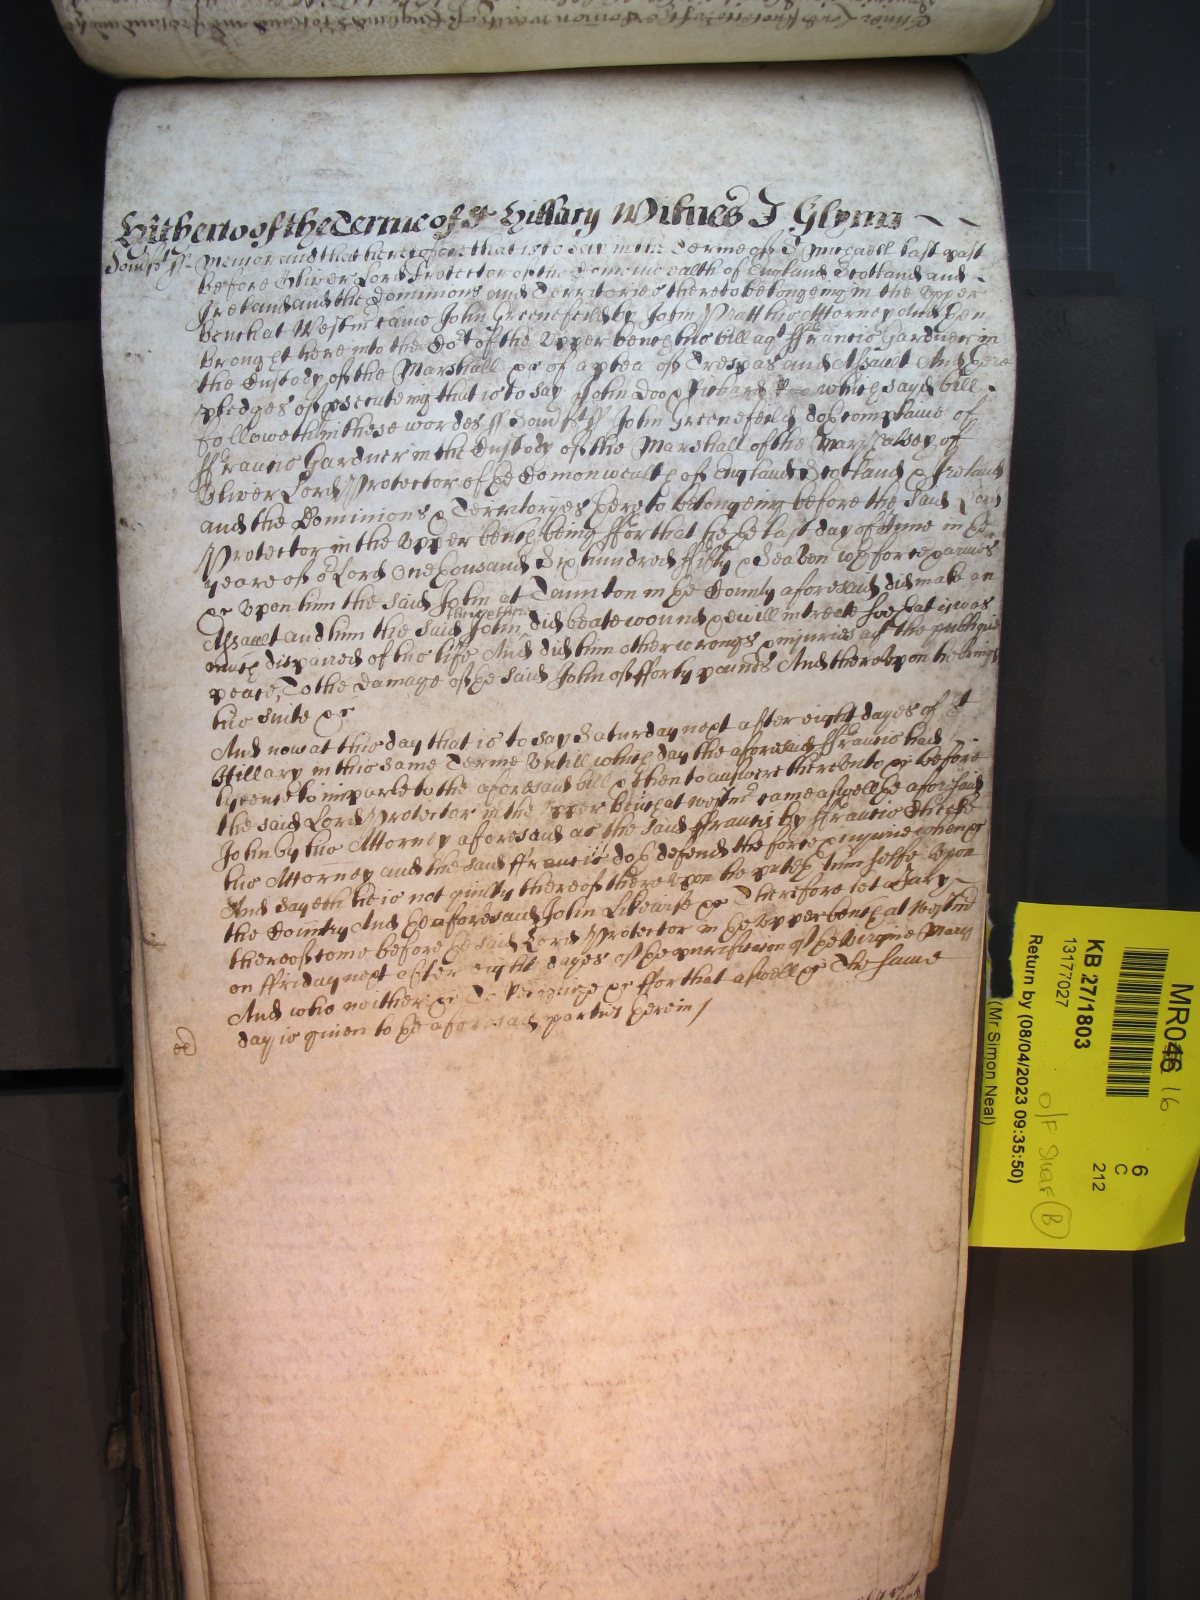 Hitherto of the Terme of St Hillary Witnes J Glynn
Somst ss Memorand that heretofore that is to say in the Terme of St Michaell last past
before Oliver Lord Protector of the Comonwealth of England Scotland and
Ireland and the Dominions and Territories thereto belongeing in the Upper
bench at Westmr came John Greenefeild by John Matthw his Attorney and then
brought here into the Cort of the Upper bench his bill agt ffrancis Gardner in
the Custody of the Marshall &c of a plea of Trespas and Assault And there
pledges of prsecuteing that is to say John Doo & Richard Roo which sayd bill
followeth in these wordes ss Somst ss John Greenefeild doth complaine of
ffrancis Gardner in the Custody of the Marshall of the Marshalsey of
Oliver Lord Protector of the Comonwealth of England Scotland & Ireland
and the Dominions & Territoryes thereto belongeing before the said Lord
Protector in the Upper bench being ffor that he the last day of June in the
yeare of or Lord One thousand Six hundred ffifty & Seaven wth force & armes
&c Upon him the said John at Taunton in the County aforesaid did make an
Assault and him the said John did beate wound & evill intreate soe that it was
much dispaired of his life And did him other wrongs & injuries agt the publique
peace, To the damage of the said John of fforty pounds And thereupon he brings
his suite &c
And now at this day that is to say Saturday next after eight dayes of St
Hillary in this same Terme Untill which day the aforesaid ffrancis had
lycence to imparle to the aforesaid bill & then to answere thereunto &c before
the said Lord Protector in the Upper bench at Westmr came aswell the aforesaid
John by his Attorney aforesaid as the said ffrancis by ffrancis
his Attorney and the said ffrancis doth defend the force & injurie when &c
And sayeth he is not guilty thereof thereupon he puteth him selfe Upon
the Country And the aforesaid John Likewise &c Therefore let a Jury
thereof come before the said Lord Protector in the Upper bench at Westmr
on ffriday next after eight dayes of the purificacion of the Virgine Mary
And who neither &c To Recognize &c ffor that aswell &c The same
day is given to the aforesaid parties therein /
MR046 16
6
C
212
KB 27/1803
13177027
Return by (08/04/2023 09:35:50)
(Mr Simon Neal)
B